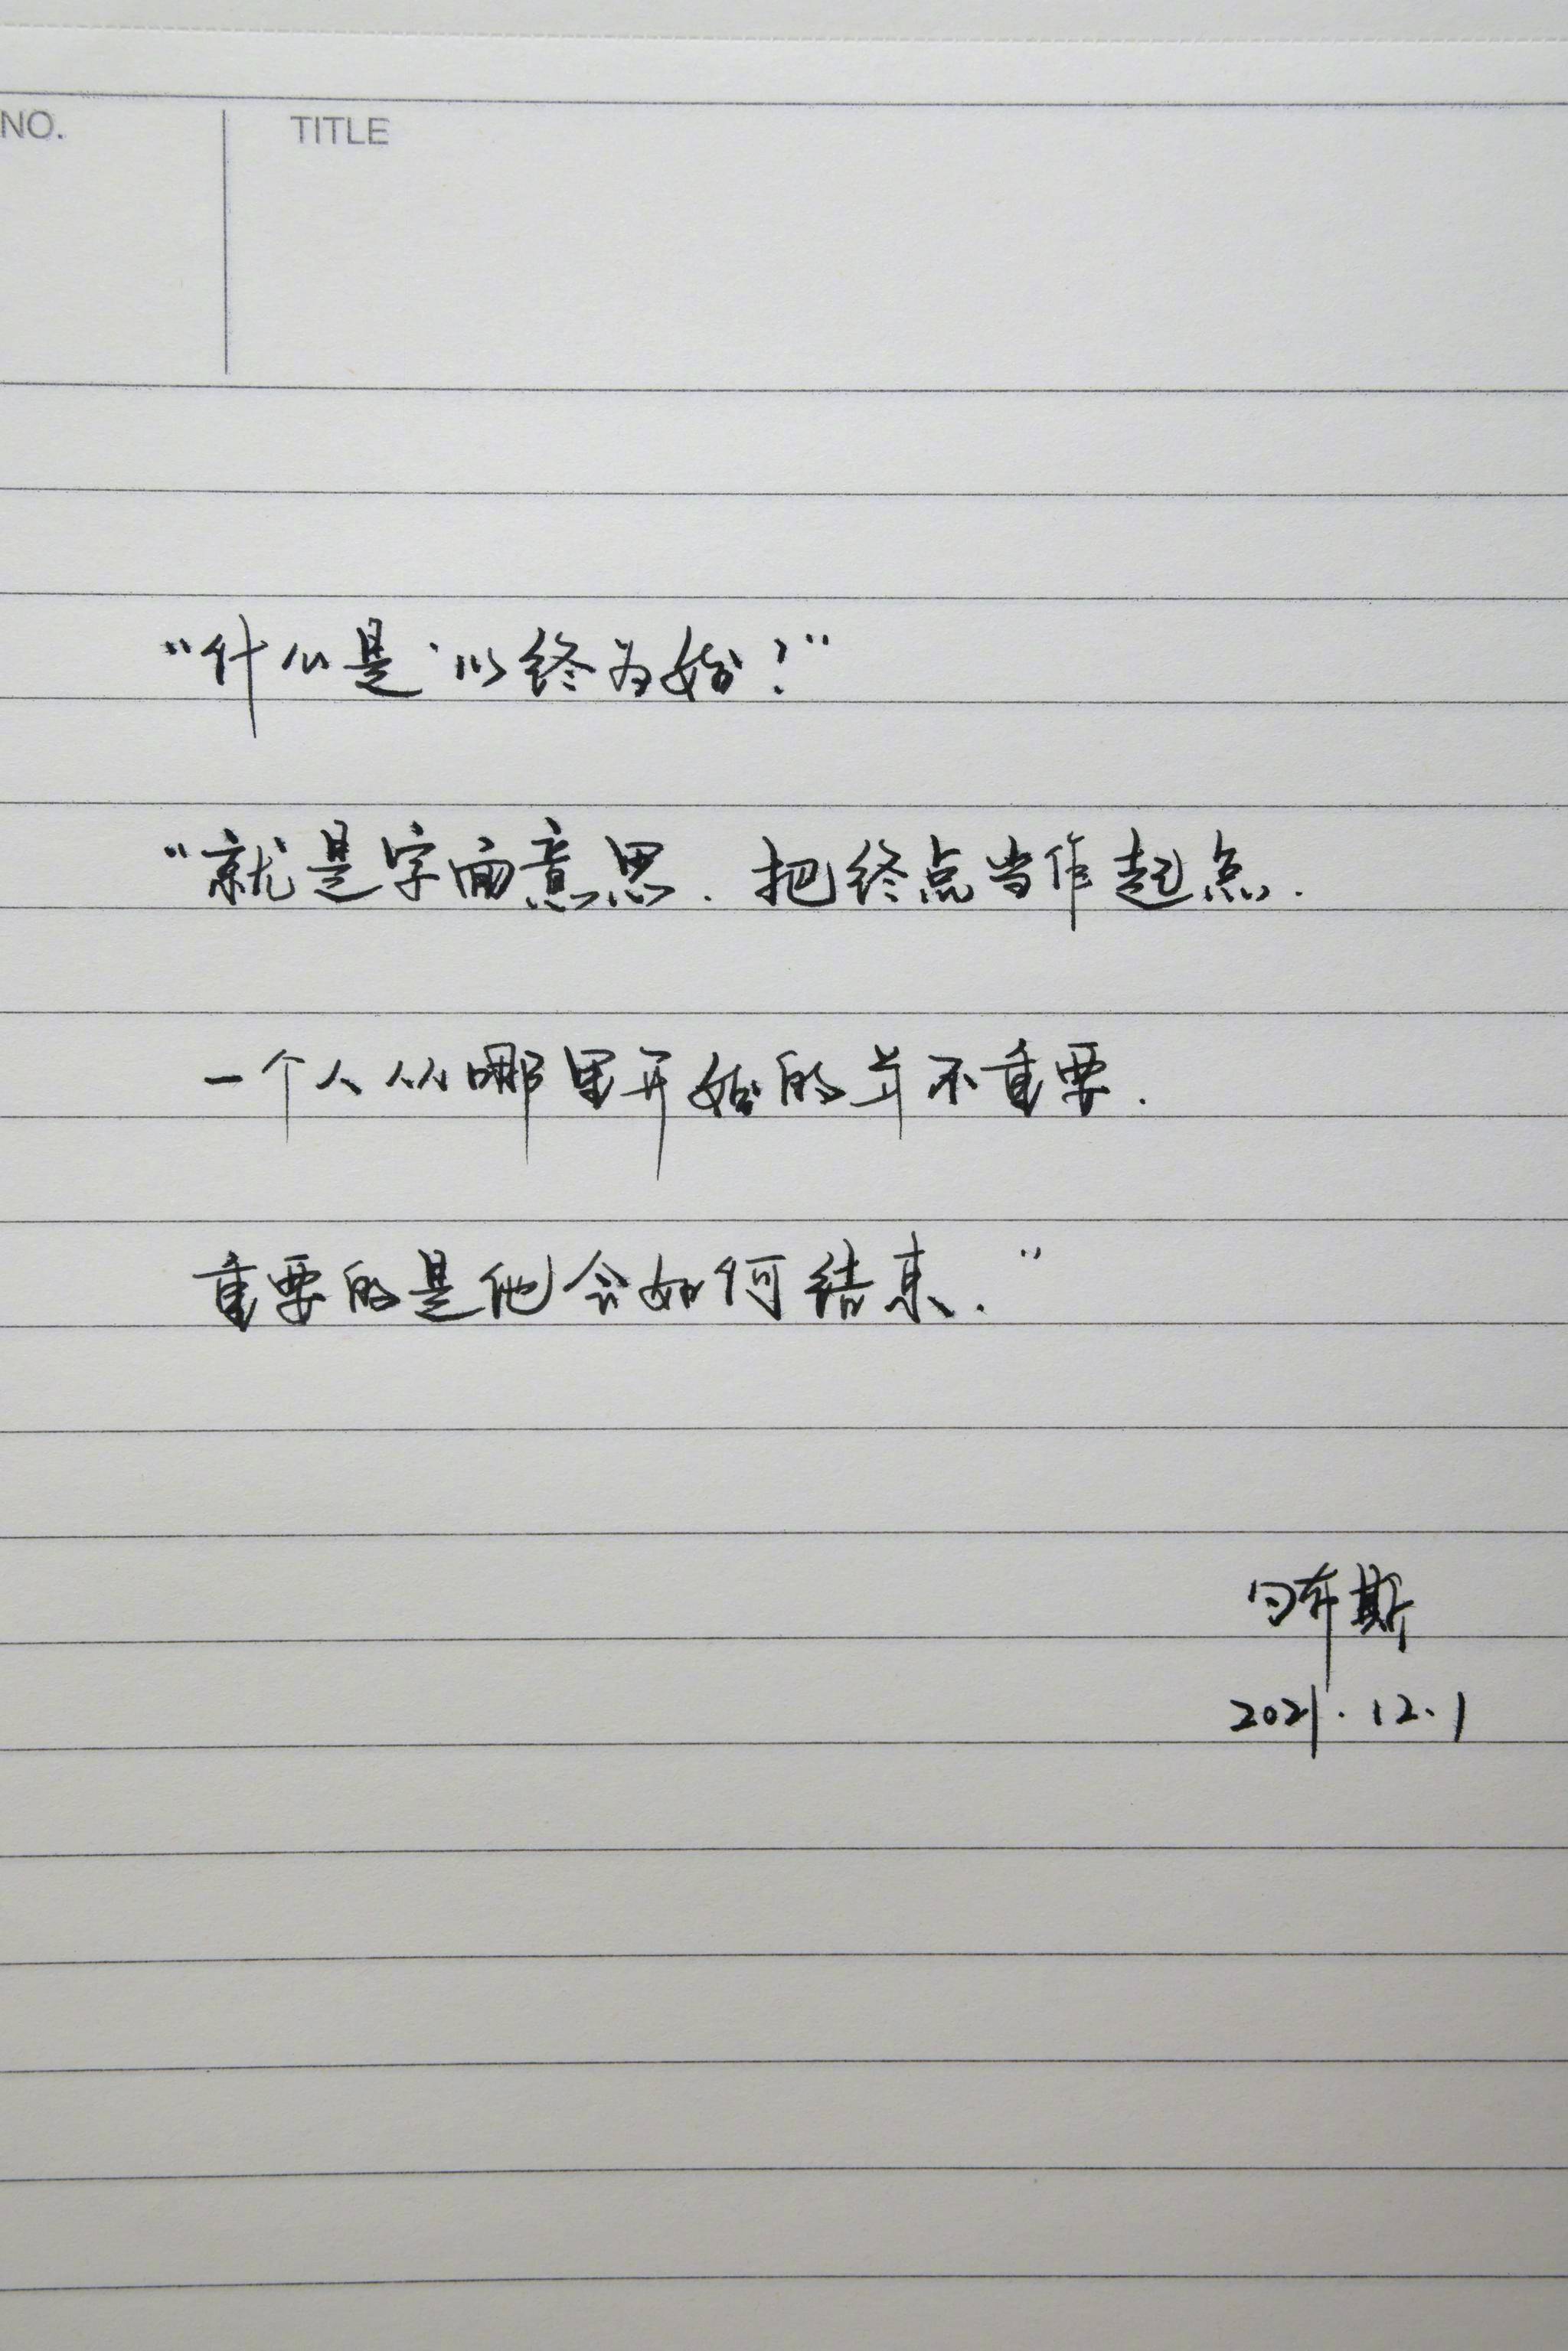 NO.
TITLE
“什么是‘以终为始?”
“就是字面意思. 把终点当作起点.
一个人从哪里开始的并不重要.
重要的是他会如何结束.”
布斯
2021.12.1